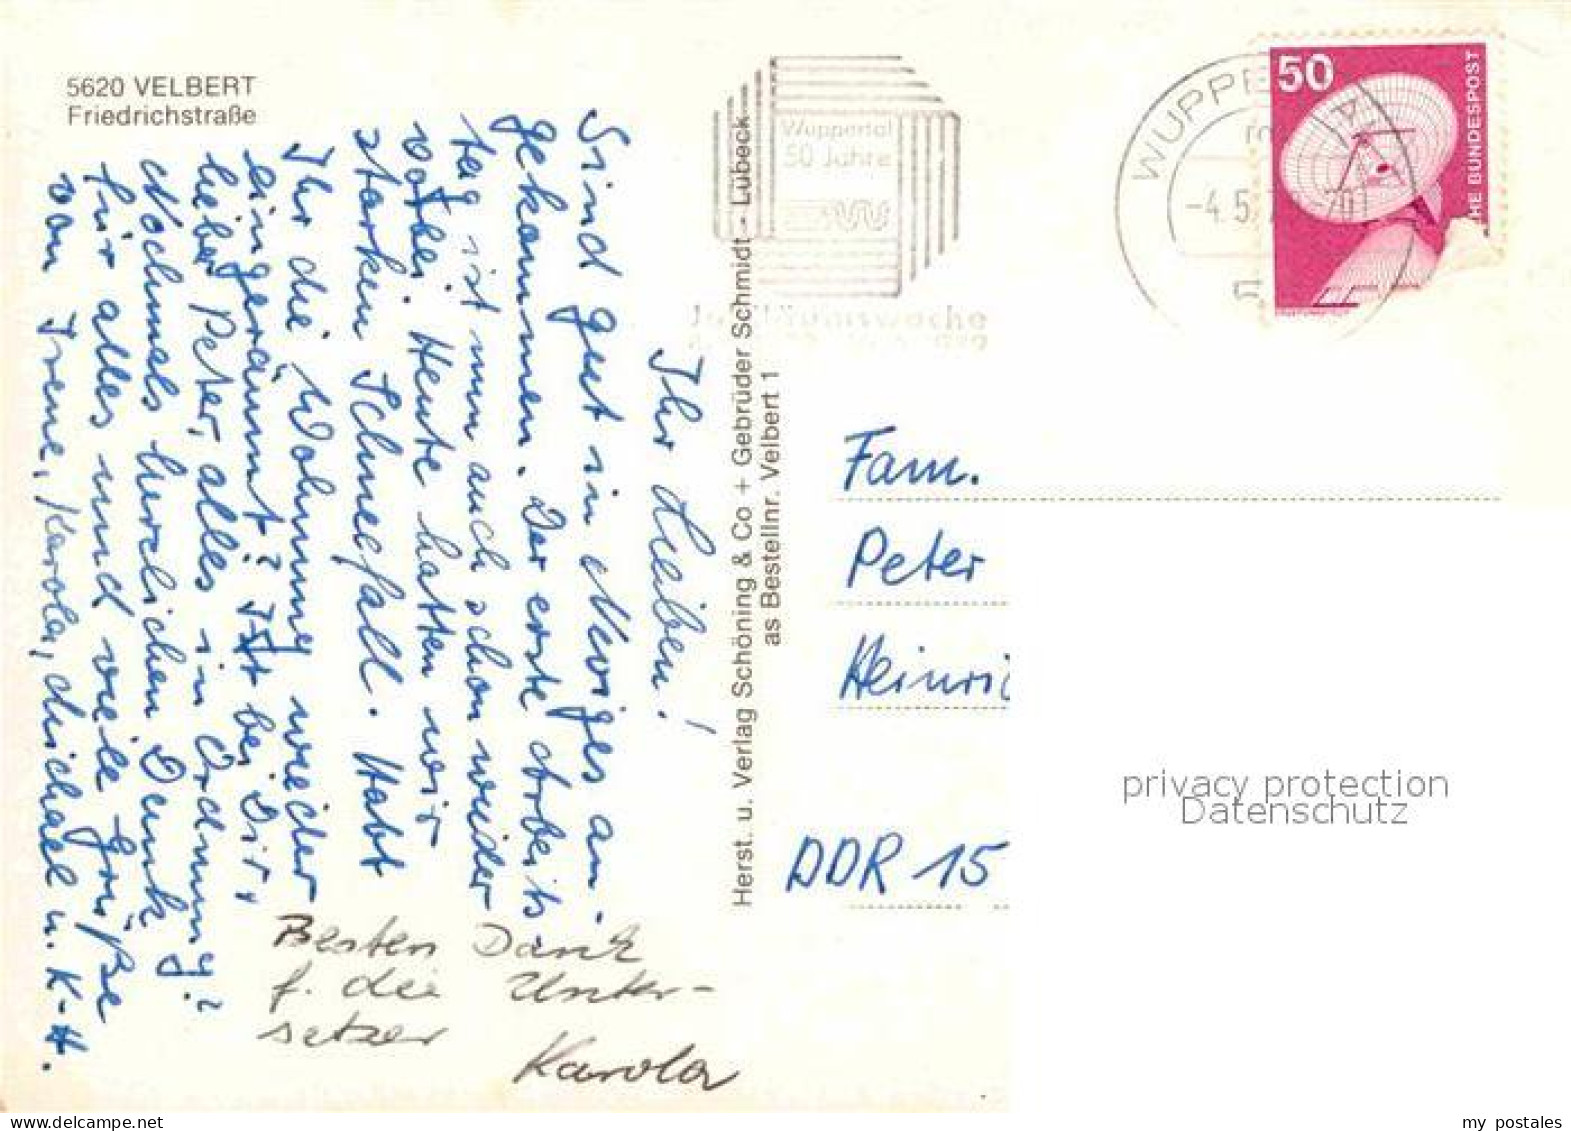 5620 VELBERT
Friedrichstraße
Ihr Lieben!
Sind gut in Neviges an-
gekommen. Der erste Arbeits-
tag ist nun auch schon wieder
vorbei. Heute hatten wir
starken Schneefall. Habt
Ihr die Wohnung wieder
eingeräumt? Ist bei Dir,
lieber Peter, alles in Ordnung?
Nochmals herzlichen Dank
für alles und viele Grüße
von Irene, Karola, Michael u. K-H.
Besten Dank
f. die Unter-
setzer
Karola
Herst. u. Verlag Schöning & Co + Gebrüder Schmidt - Lübeck
as Bestellnr. Velbert 1
Wuppertal
50 Jahre
Jubiläumswoche
WUPPE
-4.5.7
50
HE BUNDESPOST
Fam.
Peter
Heinri
DDR 15
privacy protection
Datenschutz
my postales